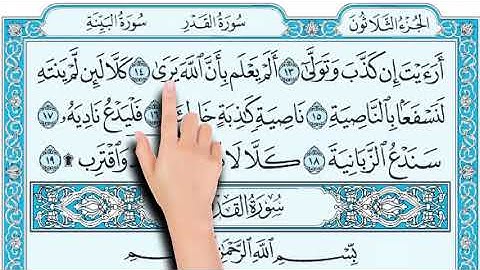 الجزء الثلاثون سورة القدر سورة البينة
أَرَءَيْتَ إِن كَذَّبَ وَتَوَلَّىٰ ١٣ أَلَمْ يَعْلَم بِأَنَّ ٱللَّهَ يَرَىٰ ١٤ كَلَّا لَئِن لَّمْ يَنتَهِ
لَنَسْفَعًۢا بِٱلنَّاصِيَةِ ١٥ نَاصِيَةٍ كَٰذِبَةٍ ١٦ فَلْيَدْعُ نَادِيَهُۥ ١٧
سَنَدْعُ ٱلزَّبَانِيَةَ ١٨ كَلَّا لَا وَٱقْتَرِب ۩ ١٩
سُورَةُ
بِسْمِ ٱللَّهِ ٱلرَّحْمَٰنِ